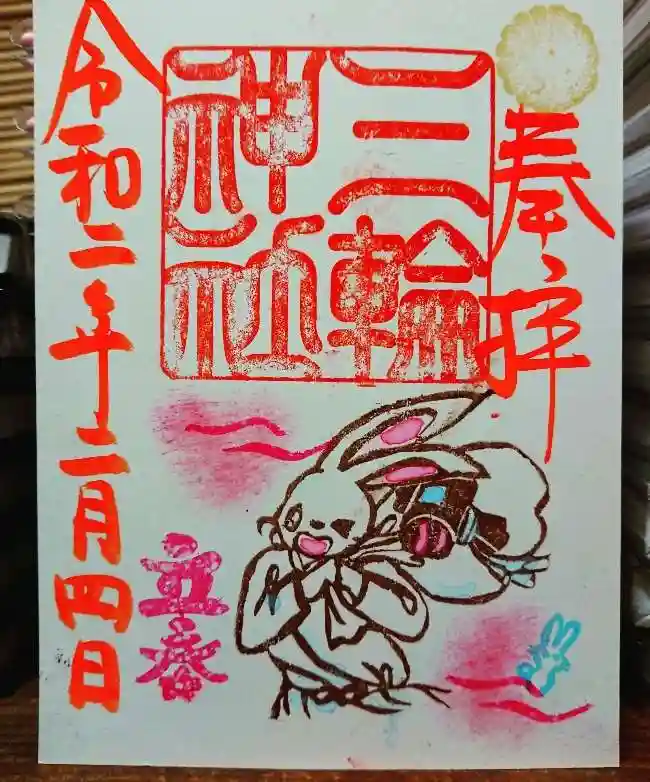 奉拝
三輪
神社
立春
令和二年二月四日